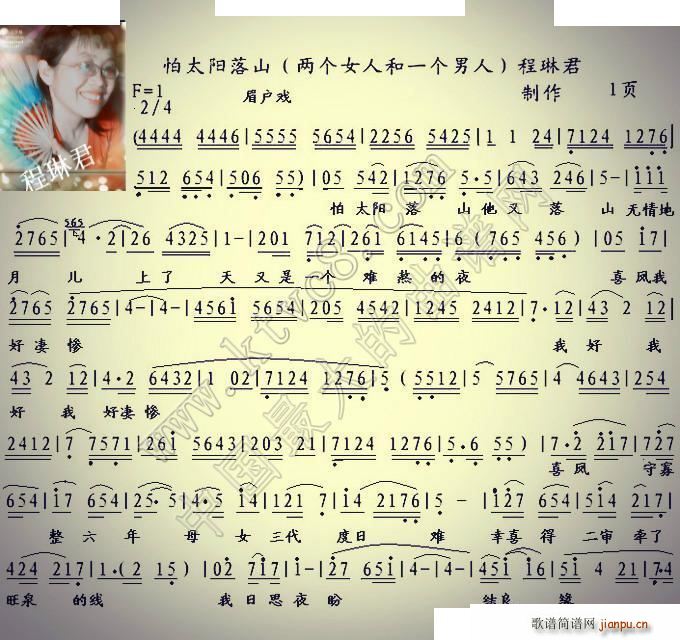 怕太阳落山（两个女人和一个男人）程琳君
F=1 眉户戏 制作 1页
2/4
程琳君
(4444 4446|5555 5654|2256 5425|1 1 24|7124 1276|
512 654|506 55)|05 542|1276 5·5|643 246|5-|111
怕 太阳 落 山 他 又 落 山 无情地
2765|4· 2|26 4325|1-|201 712|261 6145|6(765 456)|05 17|
565
月 儿 上 了 天 又 是 一 个 难 熬 的 夜 喜 凤 我
2765 2765|4-|4-|4561 5654|205 4542|1245 2412|7·12|43 2 12|
好 凄 惨 我 好 我
43 2 12|4·2 6432|1 02|7124 1276|5(5512|5 5765|4 4643|254
好 我 好凄 惨
2412|7 7571|261 5643|203 21|7124 1276|5·6 55)|7·2 217|727
喜 凤 守寡
654|17 654|25·5|4·5 24|121 7|14 2176|5-|127 654|14 217|654
整 六 年 母 女 三代 度日 难 幸喜 得 二审 牵了
424 217|1·(2 15)|02 717|1·6|27 651|4-|4-|451 651|5·7|654
旺泉 的线 我 日 思 夜 盼 结良 缘
www.ktvc8.com
中国最大的曲谱网
歌谱简谱网
jianpu.cn